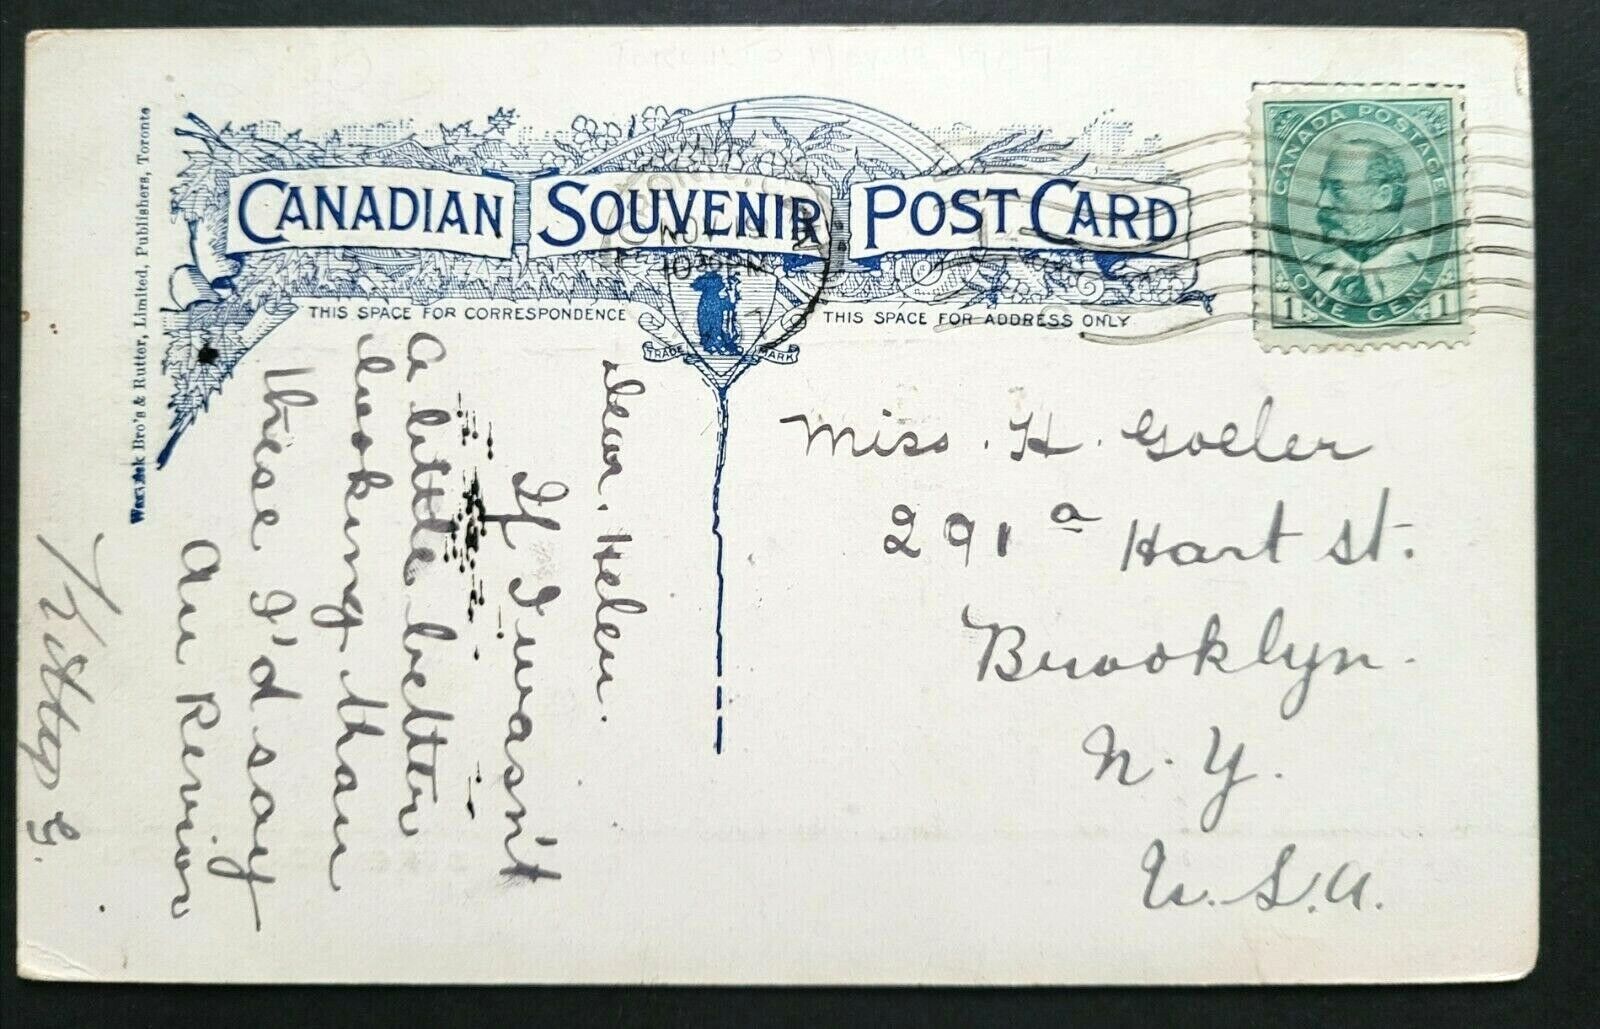 CANADIAN SOUVENIR POST CARD
THIS SPACE FOR CORRESPONDENCE
THIS SPACE FOR ADDRESS ONLY
TRADE MARK
Bro's & Rutter, Limited, Publishers, Toronto
CANADA POSTAGE
1 ONE CENT 1
NOV 19
PM
Dear. Helen.
If I wasn't
a little better
looking than
these I'd say
Au Revior
Kitty G.
Miss. H. Goeler
291 a Hart St.
Brooklyn.
N. Y.
U. S. A.